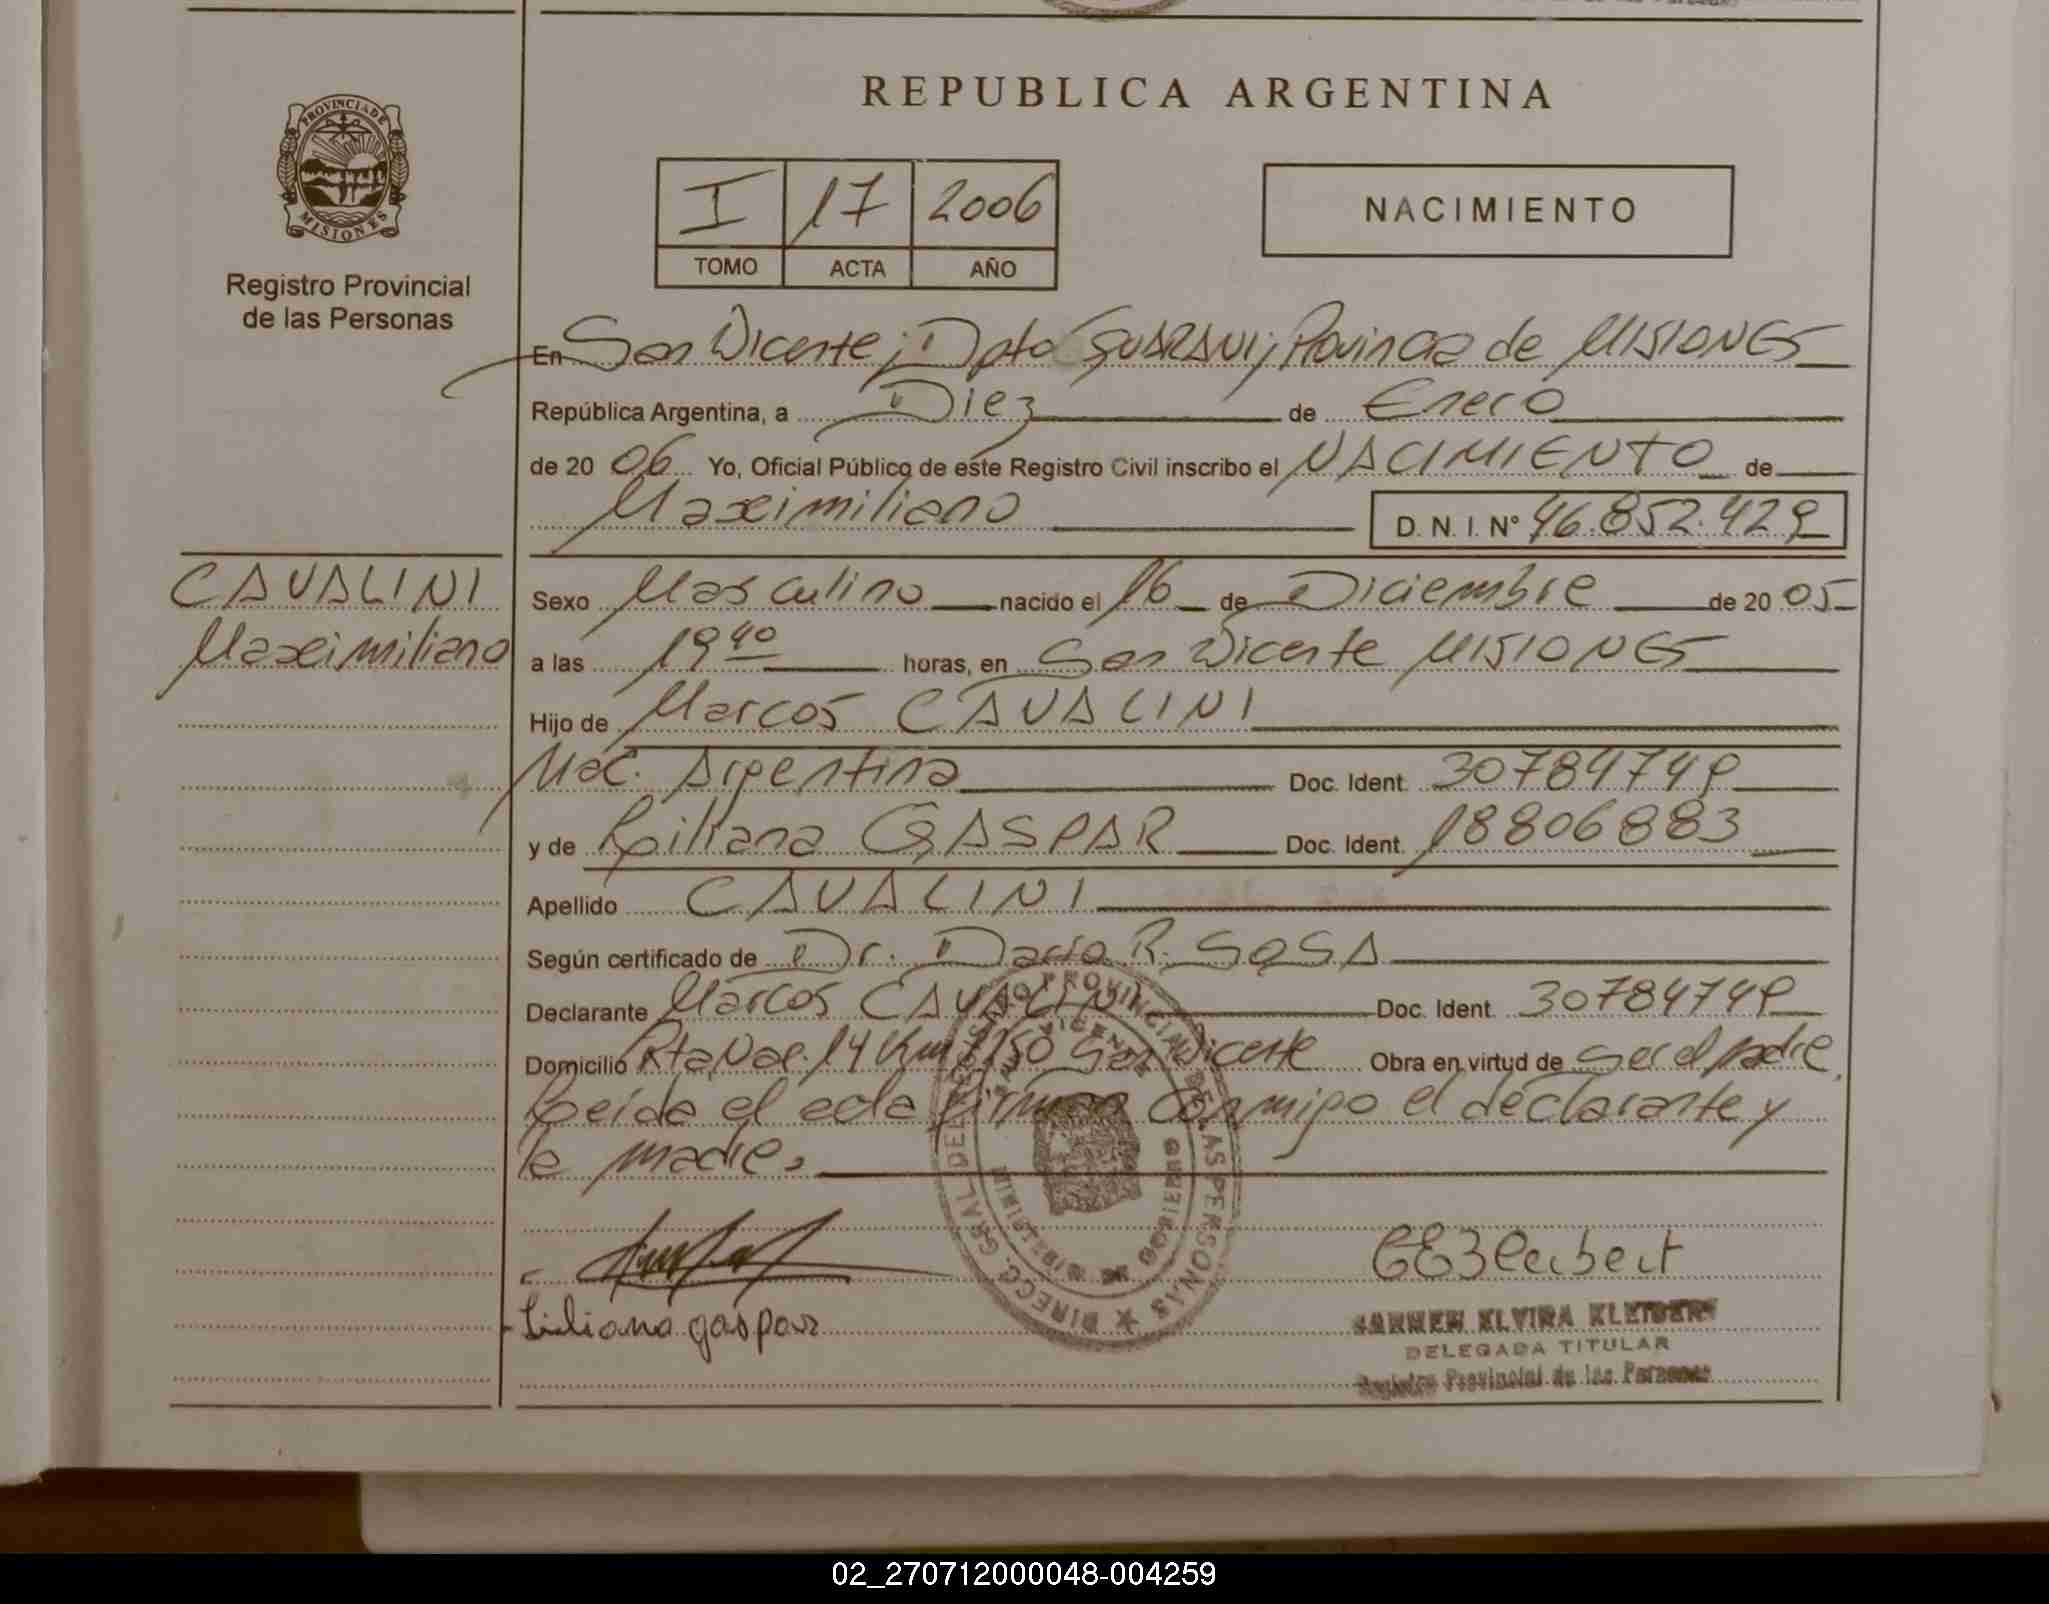 REPUBLICA ARGENTINA
PROVINCIA DE
MISIONES
Registro Provincial
de las Personas
I 17 2006
TOMO ACTA AÑO
NACIMIENTO
En San Vicente; Dpto GUARANI; Provincia de MISIONES
República Argentina, a Diez de Enero
de 2006 Yo, Oficial Público de este Registro Civil inscribo el NACIMIENTO de
Maximiliano D. N. I. N° 46.852.429
CAVALINI
Maximiliano
Sexo Masculino nacido el 16 de Diciembre de 2005
a las 19 40 horas, en San Vicente MISIONES
Hijo de Marcos CAVALINI
Nac. Argentina Doc. Ident. 30784749
y de Liliana GASPAR Doc. Ident. 18806883
Apellido CAVALINI
Según certificado de Dr. Dario R. SOSA
Declarante Marcos CAVALINI Doc. Ident. 30784749
Domicilio Rta Nac. 14 Km San Vicente Obra en virtud de ser el padre,
Leída el acta firman conmigo el declarante y
la madre.
DIRECC. GRAL DEL REGISTRO PROVINCIAL DE LAS PERSONAS
SAN VICENTE
MINISTERIO DE GOBIERNO
Liliana gaspar
CARMEN ELVIRA KLEIBERT
DELEGADA TITULAR
Registro Provincial de las Personas
02_270712000048-004259